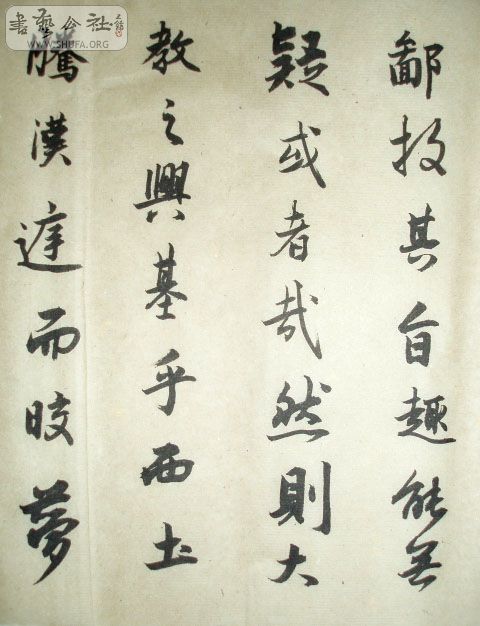 鄙投其旨趣能无
疑或者哉然則大
教之興基乎西土
騰漢庭而晈夢
書藝公社
WWW.SHUFA.ORG